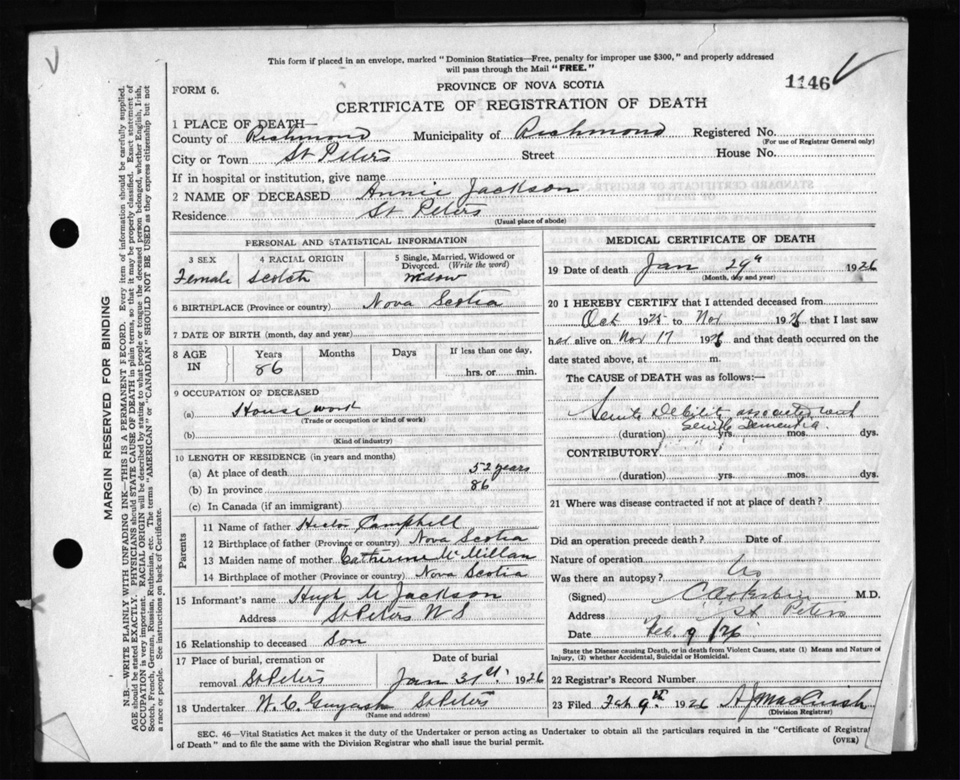 This form if placed in an envelope, marked "Dominion Statistics—Free, penalty for improper use $300," and properly addressed
will pass through the Mail "FREE."
FORM 6.
PROVINCE OF NOVA SCOTIA
1146
CERTIFICATE OF REGISTRATION OF DEATH
1 PLACE OF DEATH—
County of Richmond Municipality of Richmond Registered No.
(For use of Registrar General only)
City or Town St Peters Street House No.
If in hospital or institution, give name
2 NAME OF DECEASED Annie Jackson
Residence St Peters
(Usual place of abode)
PERSONAL AND STATISTICAL INFORMATION
3 SEX 4 RACIAL ORIGIN 5 Single, Married, Widowed or
Divorced. (Write the word)
Female Scotch Widow
6 BIRTHPLACE (Province or country) Nova Scotia
7 DATE OF BIRTH (month, day and year)
8 AGE IN Years Months Days If less than one day,
86 hrs. or min.
9 OCCUPATION OF DECEASED
(a) House work
(Trade or occupation or kind of work)
(b)
(Kind of industry)
10 LENGTH OF RESIDENCE (in years and months)
(a) At place of death 52 years
(b) In province 86
(c) In Canada (if an immigrant)
Parents
11 Name of father Hector Campbell
12 Birthplace of father (Province or country) Nova Scotia
13 Maiden name of mother Catherine McMillan
14 Birthplace of mother (Province or country) Nova Scotia
15 Informant's name Hugh M Jackson
Address St Peters N S
16 Relationship to deceased Son
17 Place of burial, cremation or Date of burial
removal St Peters Jan 31st 1926
18 Undertaker W. C. St Peters
(Name and address)
MEDICAL CERTIFICATE OF DEATH
19 Date of death Jan 29th 1926
(Month, day and year)
20 I HEREBY CERTIFY that I attended deceased from
Oct 1925 to Nov 1925 that I last saw
her alive on Nov 17 1925 and that death occurred on the
date stated above, at m.
The CAUSE of DEATH was as follows:—
Senile Debility associated with
Senile Dementia.
(duration) yrs. mos. dys.
CONTRIBUTORY
(duration) yrs. mos. dys.
21 Where was disease contracted if not at place of death?
Did an operation precede death? Date of
Nature of operation
Was there an autopsy? No
(Signed) M.D.
Address St Peters
Date Feb. 9 /26
State the Disease causing Death, or in death from Violent Causes, state (1) Means and Nature of
Injury, (2) whether Accidental, Suicidal or Homicidal.
22 Registrar's Record Number
23 Filed Feb 9th 1926
(Division Registrar)
SEC. 46—Vital Statistics Act makes it the duty of the Undertaker or person acting as Undertaker to obtain all the particulars required in the "Certificate of Registra
of Death" and to file the same with the Division Registrar who shall issue the burial permit.
(OVER)
MARGIN RESERVED FOR BINDING
N.B.—WRITE PLAINLY WITH UNFADING INK—THIS IS A PERMANENT RECORD. Every item of information should be carefully supplied.
AGE should be stated EXACTLY. PHYSICIANS should STATE CAUSE OF DEATH in plain terms, so that it may be properly classified. Exact statement of
OCCUPATION is very important. RACIAL ORIGIN will be described by stating to what people or tongue the deceased person belonged, whether English, Irish,
Scotch, French, German, Russian, Ruthenian, etc. The terms "AMERICAN" or "CANADIAN" SHOULD NOT BE USED as they express citizenship but not
a race or people. See instructions on back of Certificate.